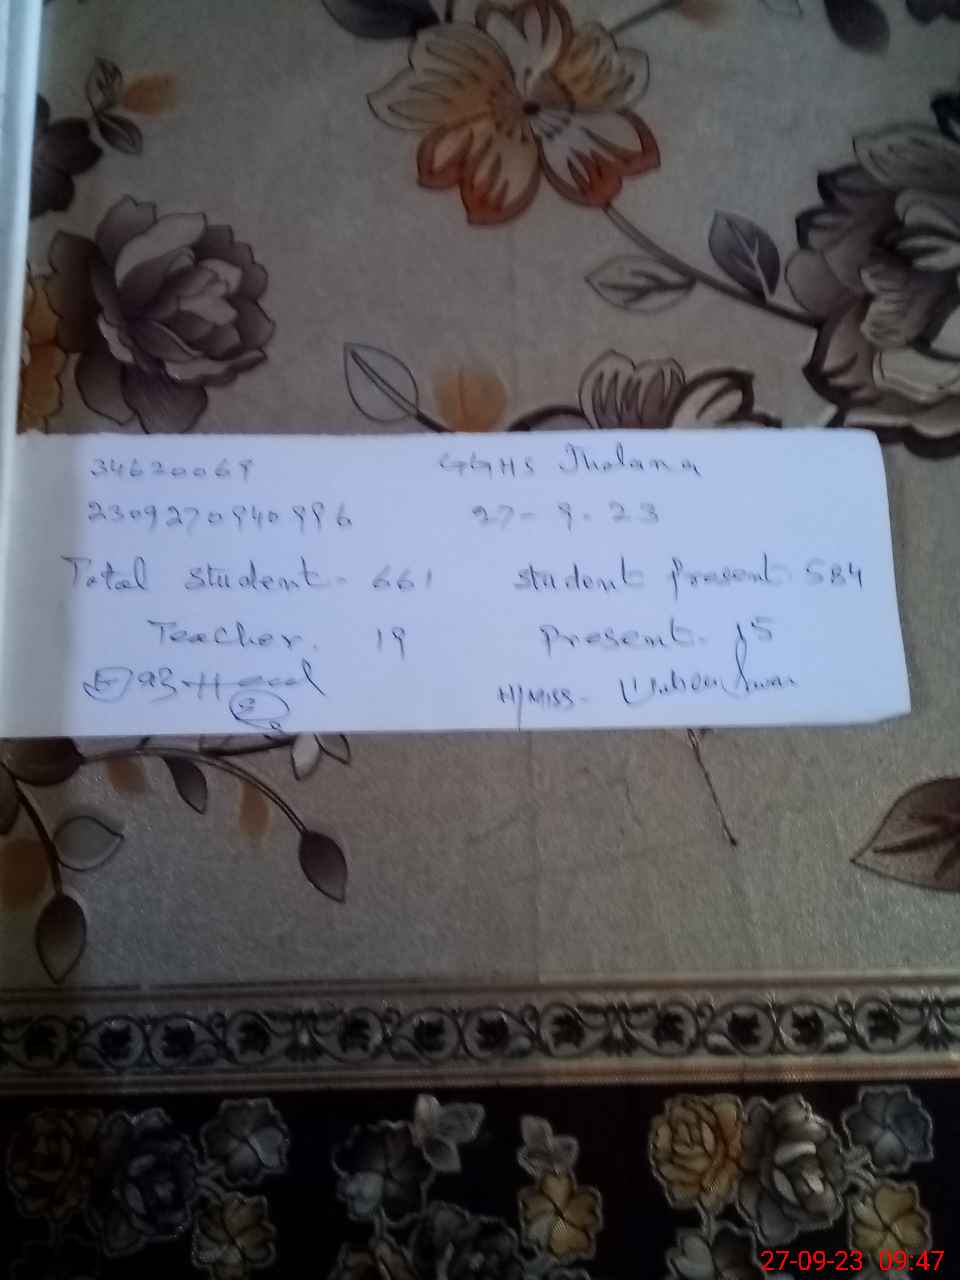 34620069 GGHS Jhalana
2309270940996 27-9-23
Total student- 661 student present 584
Teacher. 19 Present- 15
H/Miss-
27-09-23 09:47